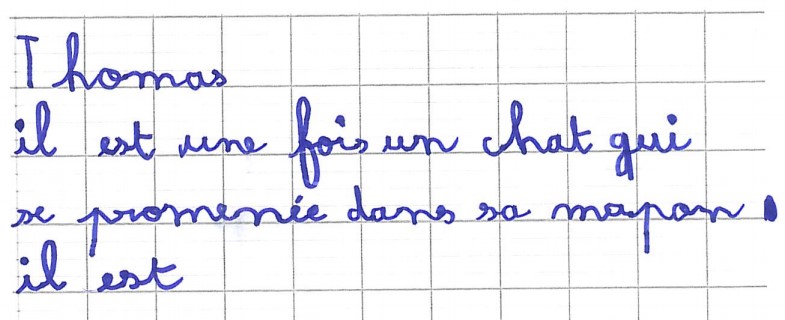 Thomas
il est une fois un chat qui
se promenée dans sa mapon.
il est